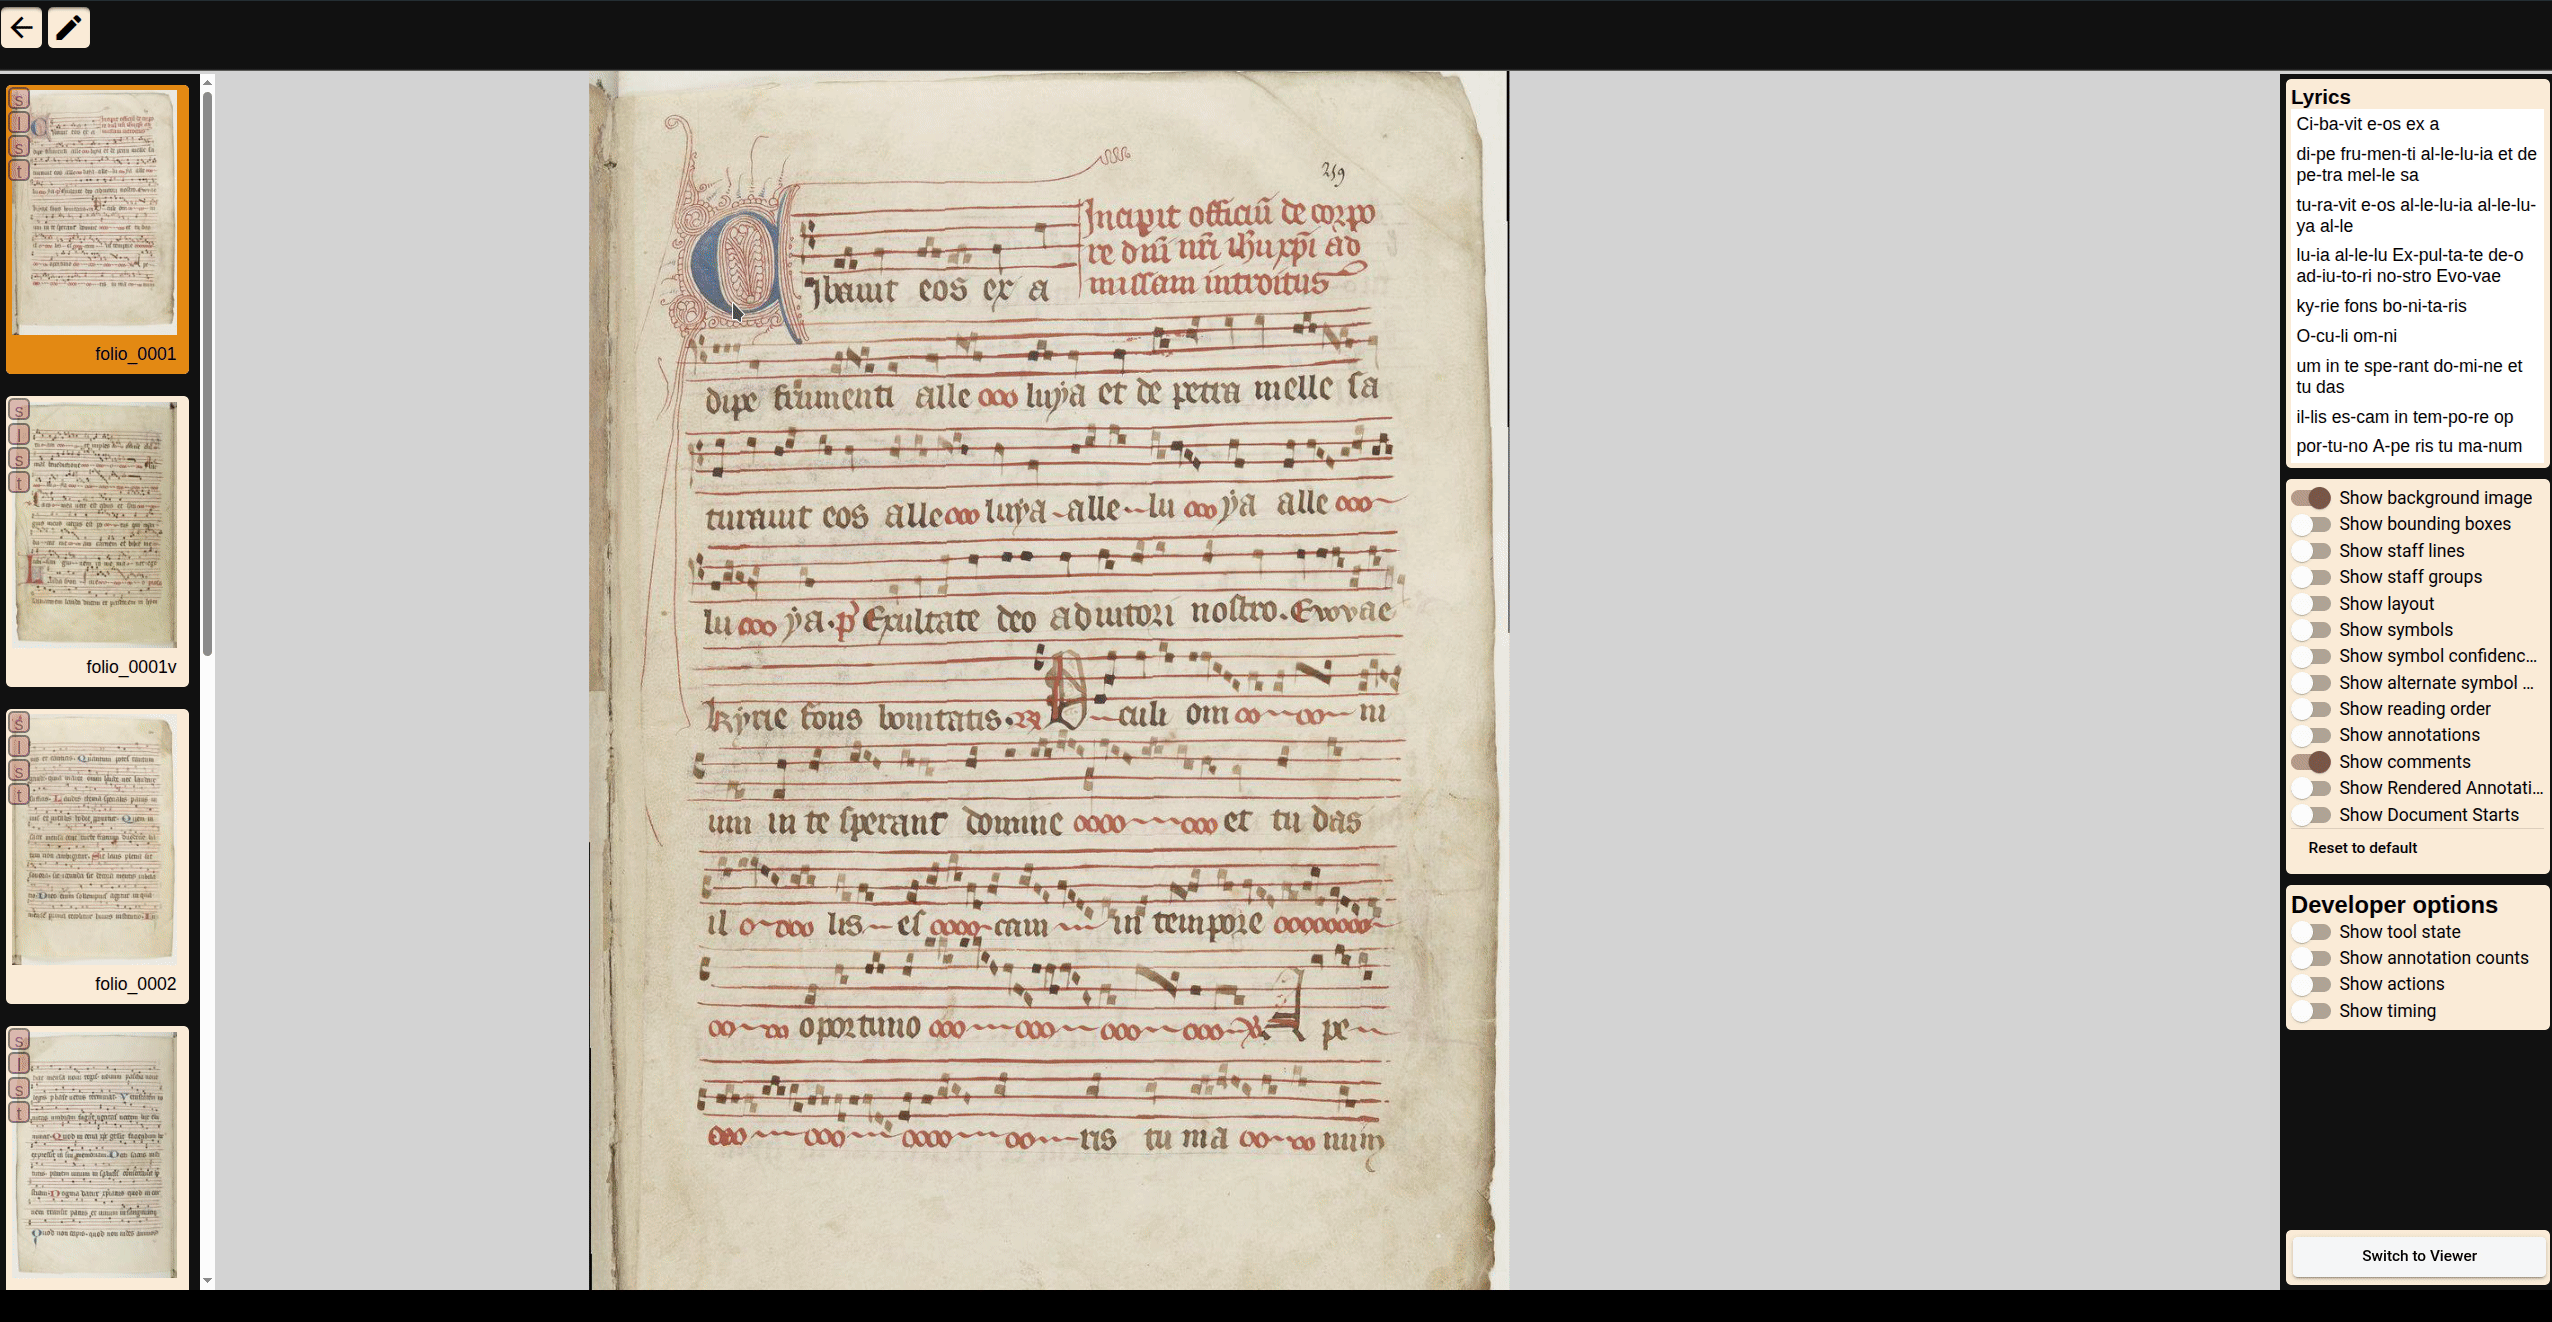 folio_0001
folio_0001v
folio_0002
259
Incipit officiū de corpo
re dnī nr̄i ihu xpī ad
missam introitus
Cibauit eos ex a
dipe frumenti alle luya et de petra melle sa
turauit eos alle luya alle lu ya alle
lu ya. p̄ Exultate deo adiutori nostro. Evovae
kyrie fons bonitatis. Oculi om ni
um in te sperant domine et tu das
il lis es cam in tempore
oportuno A pe
ris tu ma num
Lyrics
Ci-ba-vit e-os ex a
di-pe fru-men-ti al-le-lu-ia et de
pe-tra mel-le sa
tu-ra-vit e-os al-le-lu-ia al-le-lu-
ya al-le
lu-ia al-le-lu Ex-pul-ta-te de-o
ad-iu-to-ri no-stro Evo-vae
ky-rie fons bo-ni-ta-ris
O-cu-li om-ni
um in te spe-rant do-mi-ne et
tu das
il-lis es-cam in tem-po-re op
por-tu-no A-pe ris tu ma-num
Show background image
Show bounding boxes
Show staff lines
Show staff groups
Show layout
Show symbols
Show symbol confidenc...
Show alternate symbol ...
Show reading order
Show annotations
Show comments
Show Rendered Annotati...
Show Document Starts
Reset to default
Developer options
Show tool state
Show annotation counts
Show actions
Show timing
Switch to Viewer